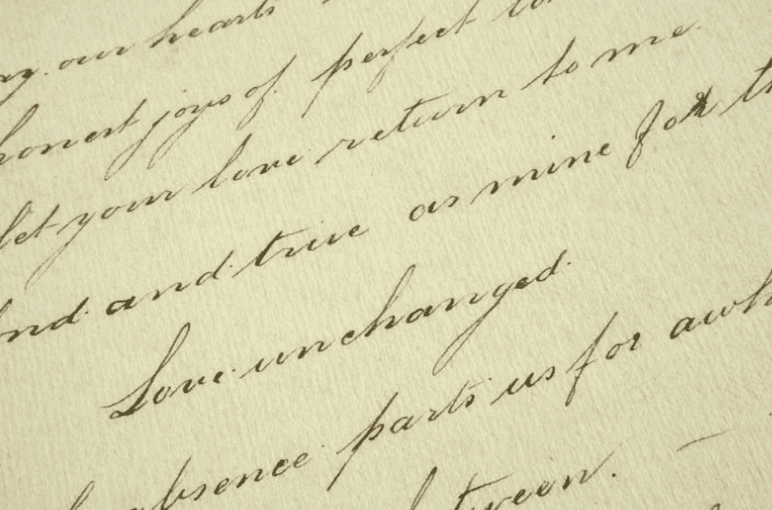 our hearts
honest joys of perfect
let your love return to me.
and true as mine for
Love unchanged.
absence parts us for